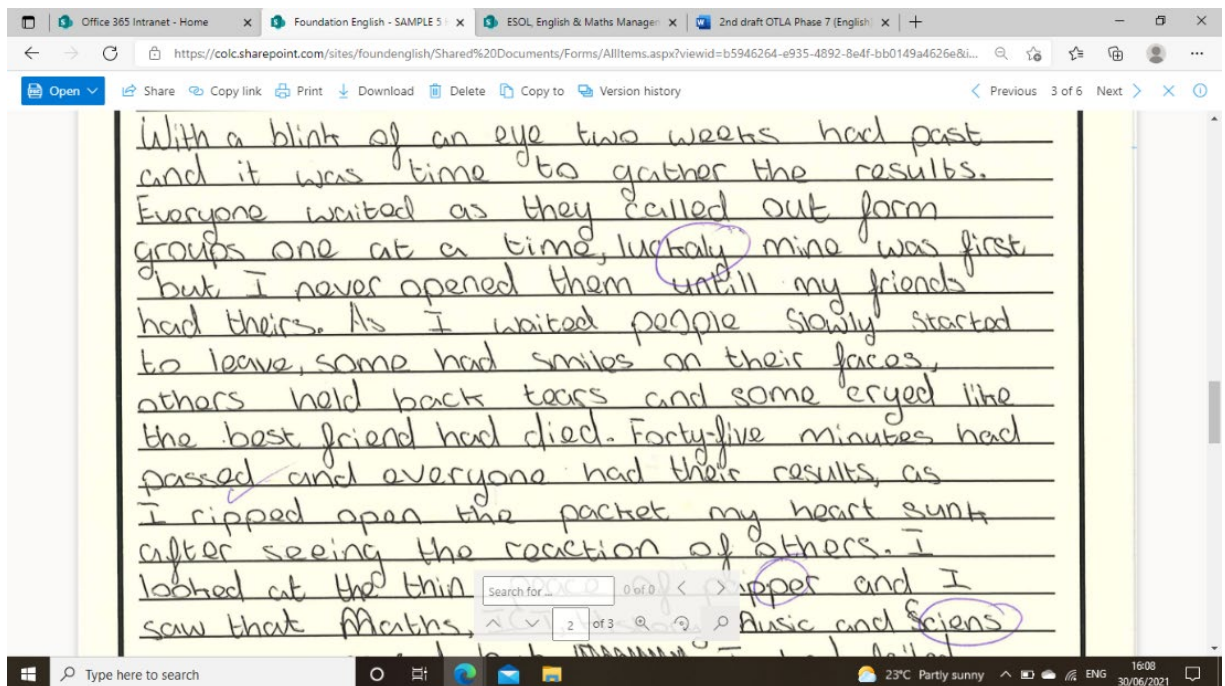 Office 365 Intranet - Home
Foundation English - SAMPLE 5
ESOL, English & Maths Manager
2nd draft OTLA Phase 7 (English
https://colc.sharepoint.com/sites/foundenglish/Shared%20Documents/Forms/AllItems.aspx?viewid=b5946264-e935-4892-8e4f-bb0149a4626e&i...
Open Share Copy link Print Download Delete Copy to Version history Previous 3 of 6 Next
With a blink of an eye two weeks had past
and it was time to gather the results.
Everyone waited as they called out form
groups one at a time, luckaly mine was first
but I never opened them untill my friends
had theirs. As I waited people slowly started
to leave, some had smiles on their faces,
others held back tears and some cryed like
the best friend had died. Forty-five minutes had
passed and everyone had their results, as
I ripped open the packet my heart sunk
after seeing the reaction of others. I
looked at the thin and I
saw that Maths, Music and Sciens
Search for... 0 of 0
2 of 3
I had failed
Type here to search
23°C Partly sunny
ENG
16:08
30/06/2021